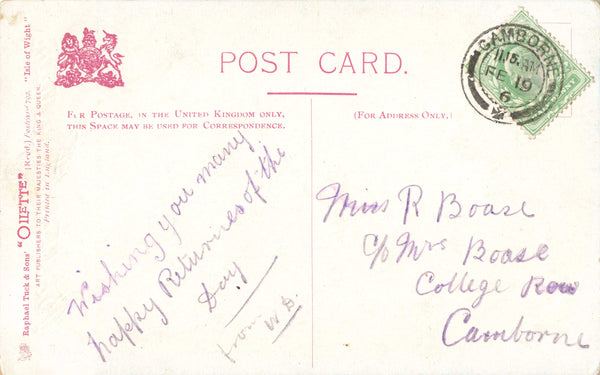 POST CARD.
FOR POSTAGE, IN THE UNITED KINGDOM ONLY,
THIS SPACE MAY BE USED FOR CORRESPONDENCE.
(FOR ADDRESS ONLY.)
Raphael Tuck & Sons' "OILETTE" [Regd.] Postcard "Isle of Wight"
ART PUBLISHERS TO THEIR MAJESTIES THE KING & QUEEN.
Printed in England.
CAMBORNE
11.15 AM
FE 19
6
Wishing you many
happy Returnes of the
Day
from W D.
Miss R Boase
c/o Mrs Boase
College Row
Camborne